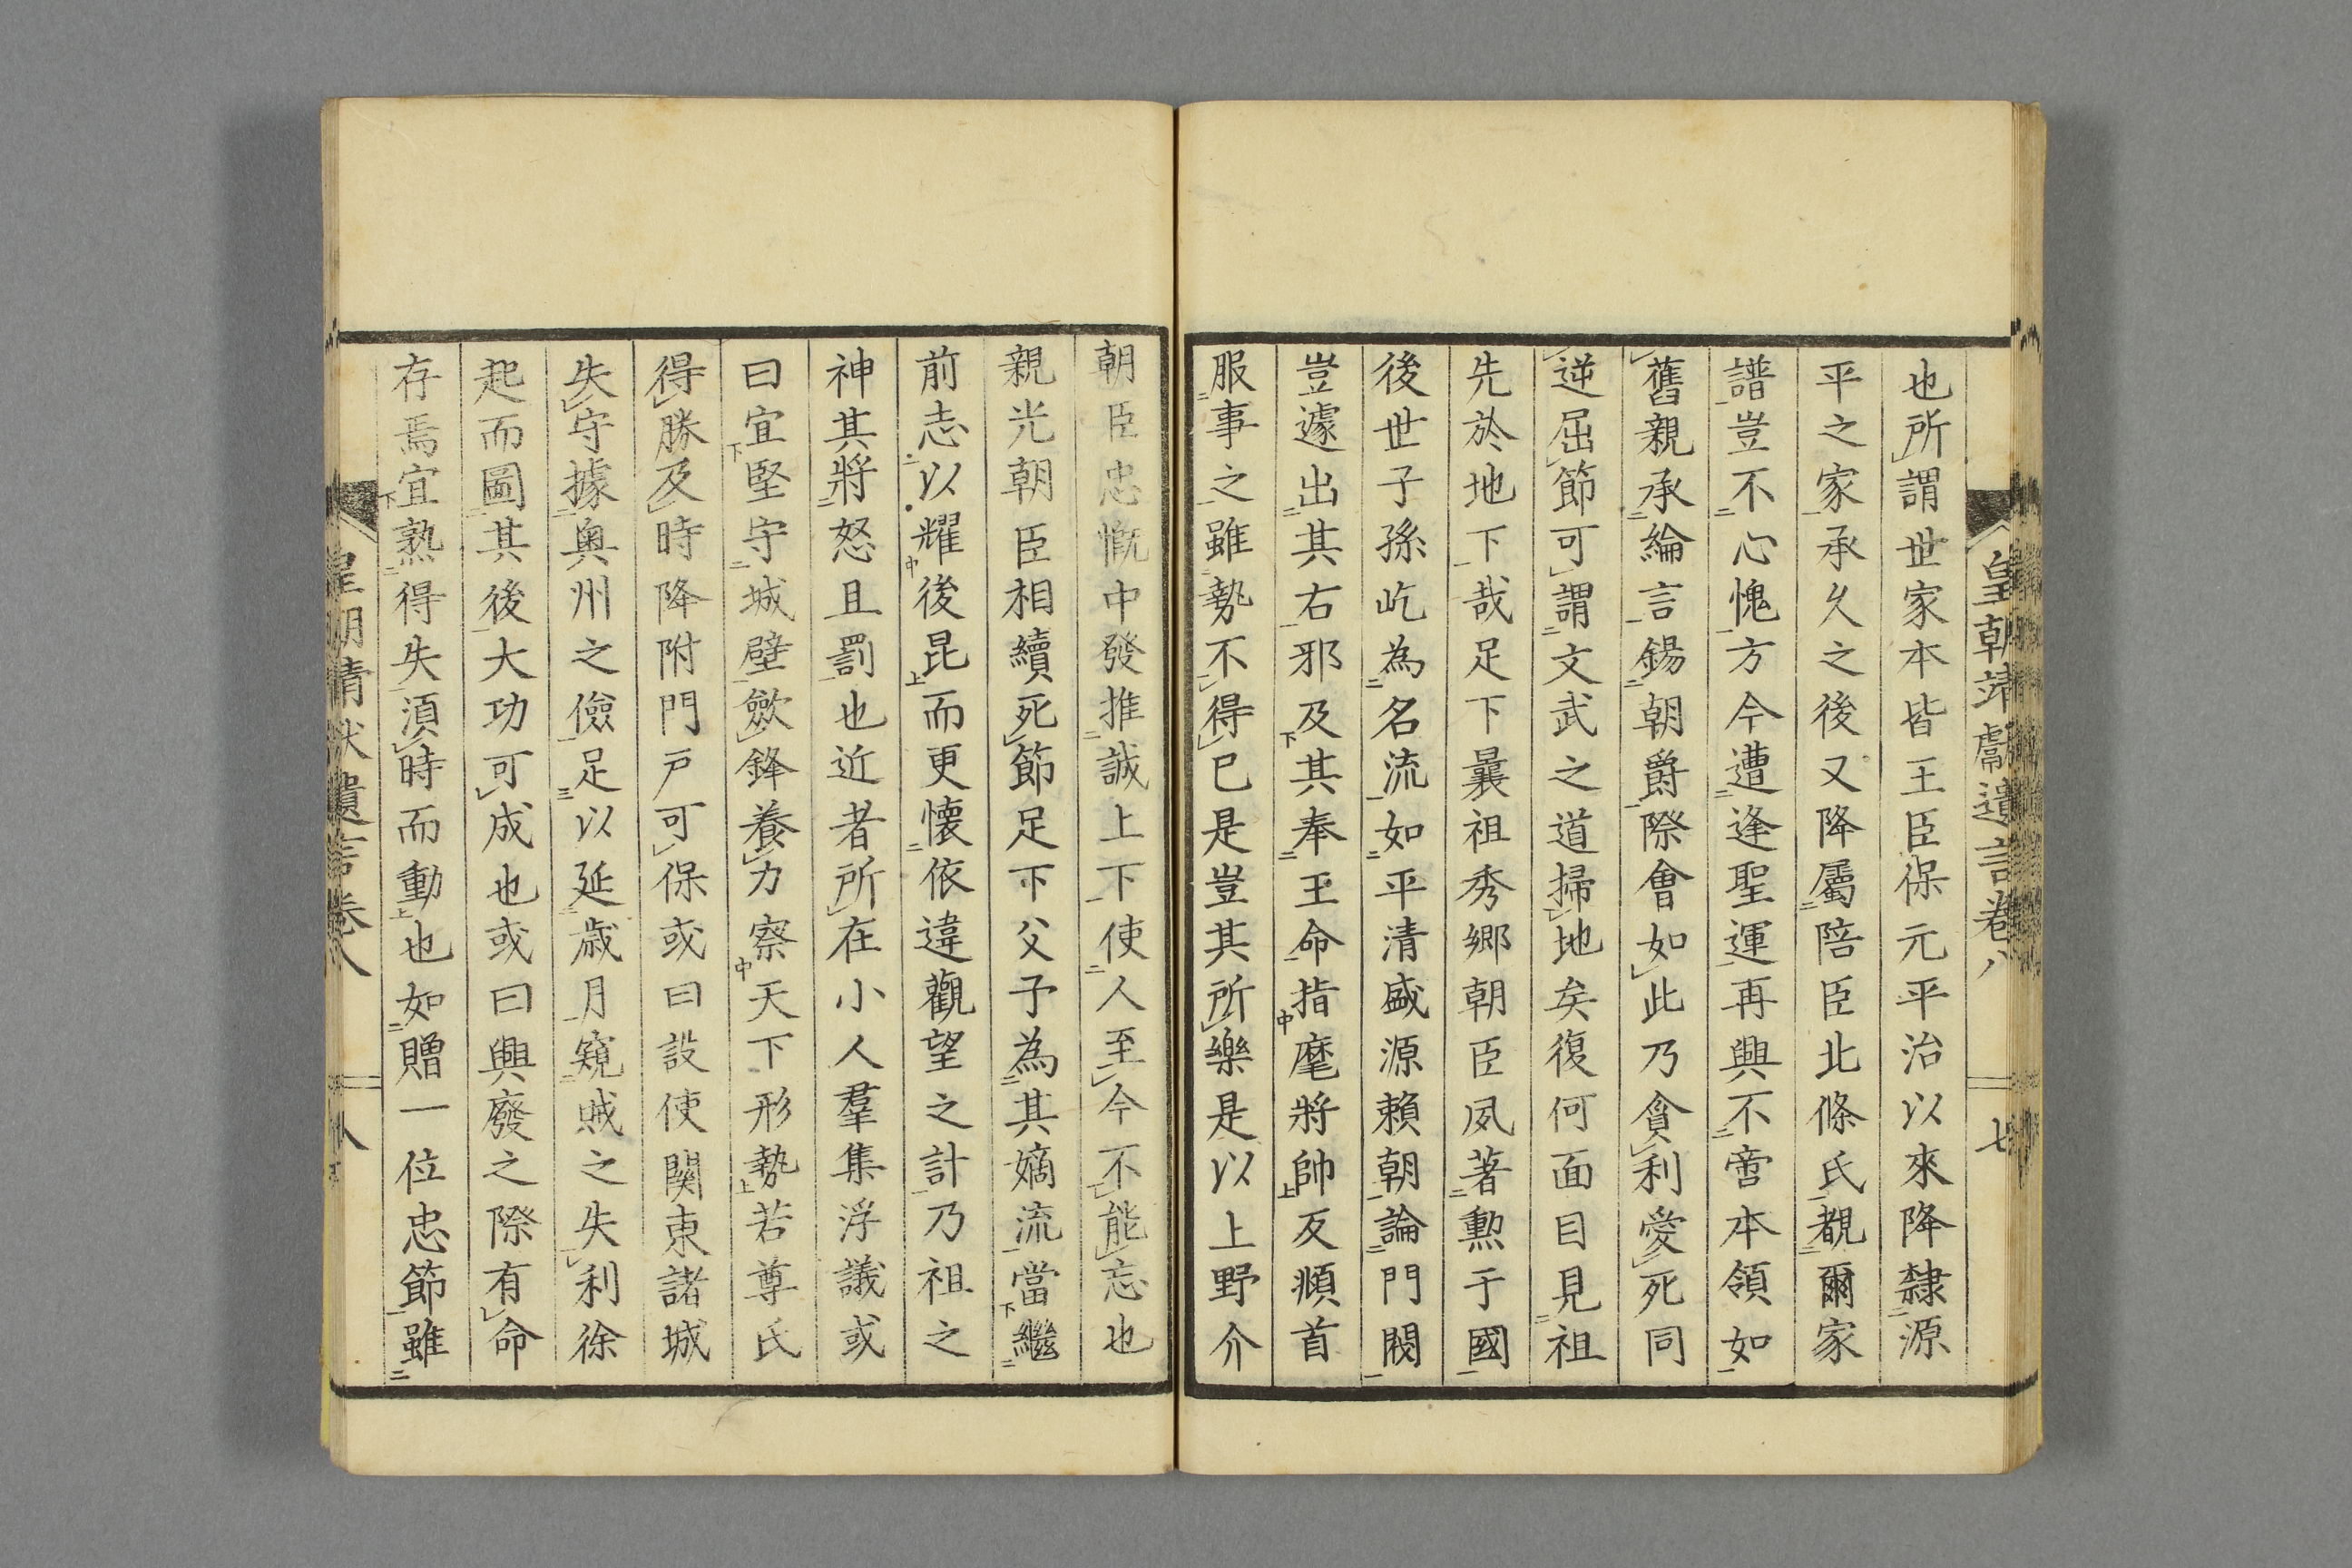 皇朝靖獻遺言卷八
七
也所謂世家本皆王臣保元平治以來降隸源
平之家承久之後又降屬陪臣北條氏覩爾家
譜豈不心愧方今遭逢聖運再興不啻本領如
舊親承綸言錫朝爵際會如此乃貪利愛死同
逆屈節可謂文武之道掃地矣復何面目見祖
先於地下哉足下曩祖秀郷朝臣夙著勲于國
後世子孫屹為名流如平清盛源賴朝論門閥
豈遽出其右邪及其奉王命指麾將帥反頫首
服事之雖勢不得已是豈其所樂是以上野介
朝臣忠慨中發推誠上下使人至今不能忘也
親光朝臣相續死節足下父子為其嫡流當繼
前志以耀後昆而更懐依違觀望之計乃祖之
神其將怒且罰也近者所在小人羣集浮議或
曰宜堅守城壁歛鋒養力察天下形勢若尊氏
得勝及時降附門戸可保或曰設使関東諸城
失守據奥州之儉足以延歳月窺賊之失利徐
起而圖其後大功可成也或曰興廢之際有命
存焉宜熟得失湏時而動也如贈一位忠節雖
皇朝靖献遺言卷八
八